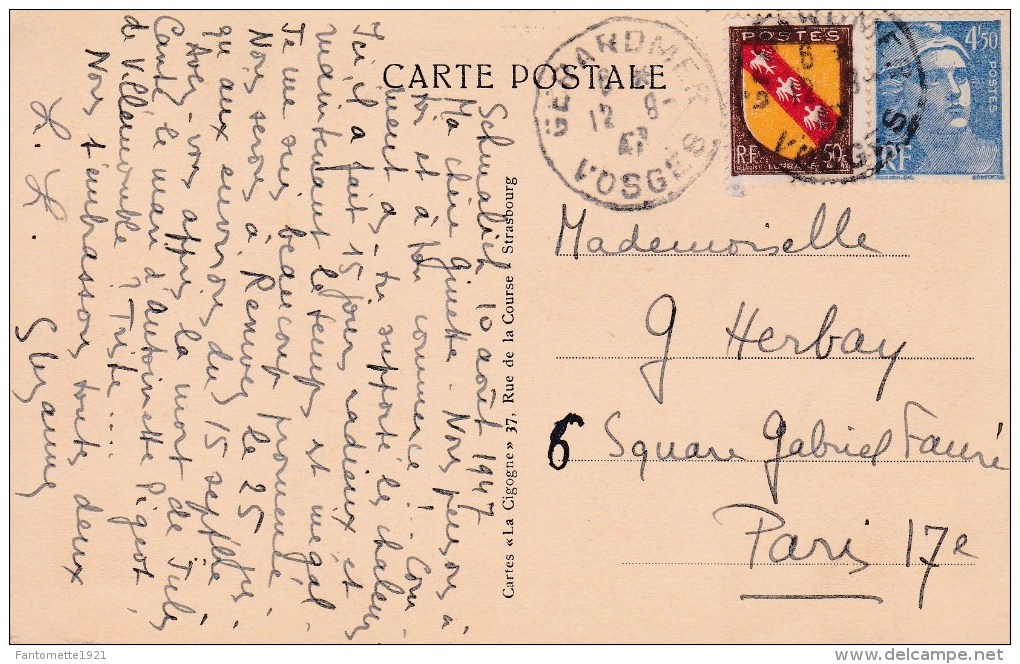 CARTE POSTALE
GERARDMER
12 8
47
VOSGES
POSTES
RF
50c
4f50
POSTES
RF
Schmalick 10 août 1947
Ma chère Ginette. Nous pensons à
toi et à ton commerce !.. Com
ment as-tu supporté les chaleurs
Ici il a fait 15 jours radieux et
maintenant le temps est inégal
Je me suis beaucoup promenée
Nous serons à Rennes le 25 jus
qu'aux environs du 15 septbre
Avez-vous appris la mort de Jules
Canté le mari d'Antoinette Pigeot
de Villemomble ? Triste.....
Nous t'embrassons toutes deux
Suzanne
Cartes « La Cigogne » 37, Rue de la Course - Strasbourg
Mademoiselle
G Herbay
6 Square Gabriel Fauré
Paris 17e
Fantomette1921
delcampe.net